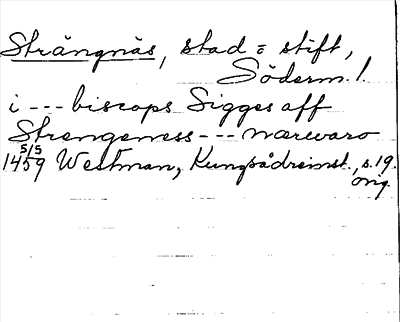 Strängnäs, stad = stift,
Söderm. l.
i --- biscops Sigges aff
Strengeness --- nærwaro
5/5
1459 Westman, Kungsådreinst., s. 19.
orig.